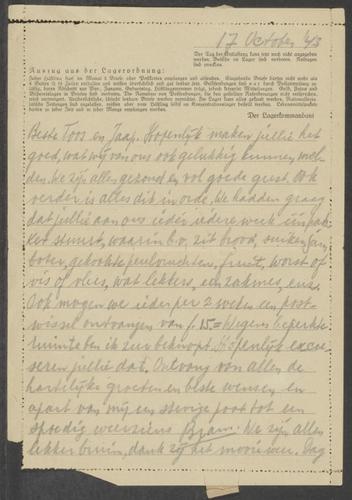 17 October '43
Der Tag der Entlassung kann jetzt noch nicht angegeben
werden. Besuche im Lager sind verboten. Anfragen
sind zwecklos.
Auszug aus der Lagerordnung:
Der Lagerkommandant
Beste Toos en Jaap. Hopenlijk maken jullie het
goed, wat wij van ons ook gelukkig kunnen mel-
den. We zijn allen gezond en vol goede geest. Ook
verder is alles dik in orde. We hadden graag
dat jullie aan ons ieder iedere week één pak-
ket stuurt, waarin b.v. zit brood, suiker, jam
boter, gekookte peulvruchten, fruit, worst of
vis of vlees, wat lekkers, een zakmes, enz.
Ook mogen we ieder per 2 weken een post-
wissel ontvangen van f. 15.= Wegens beperkte
ruimte ben ik zeer beknopt. Hopenlijk excu-
seren jullie dat. Ontvang van allen de
hartelijke groeten en beste wensen en
apart van mij een stevige poot tot een
spoedig weerziens Bram. We zijn allen
lekker bruin, dank zij het mooie weer. Dag